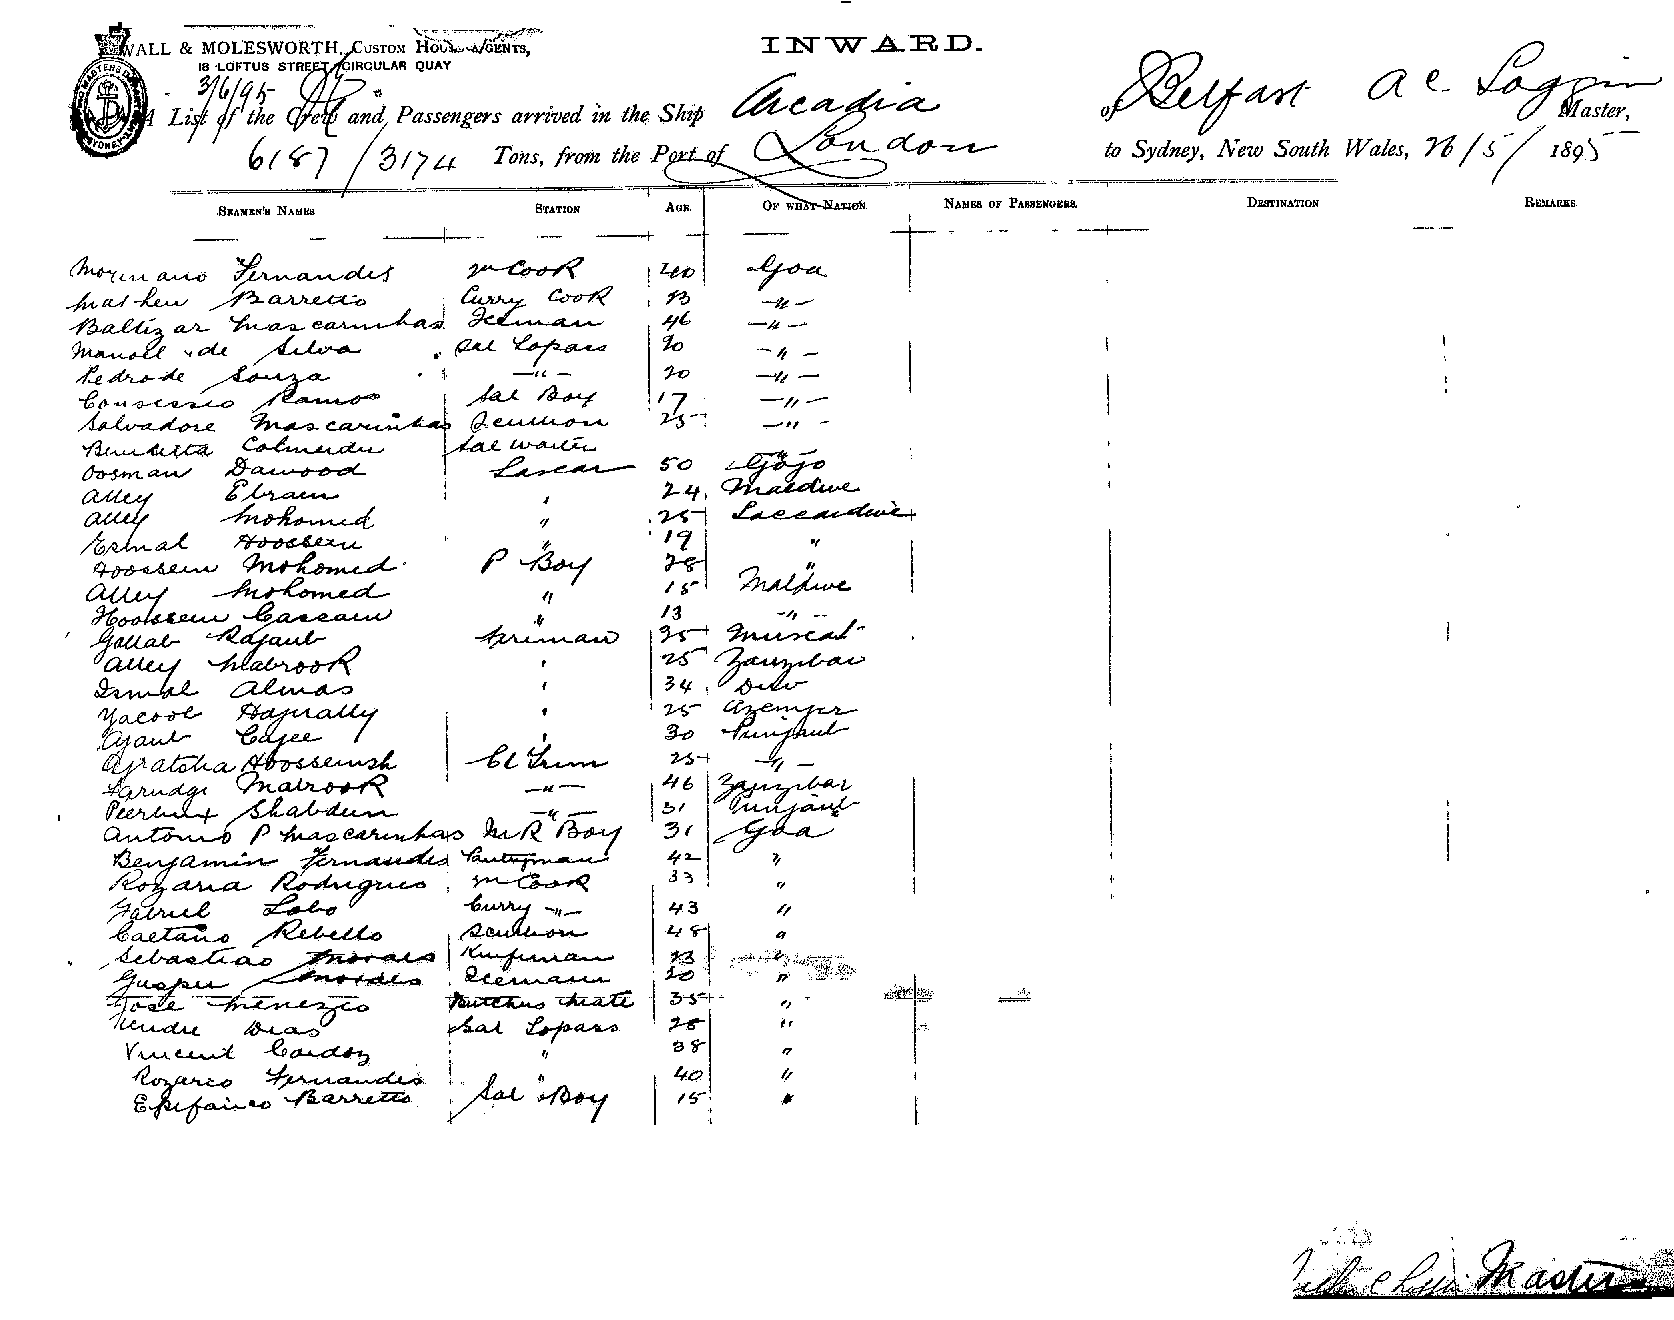 WALL & MOLESWORTH, CUSTOM HOUSE AGENTS,
18 LOFTUS STREET, CIRCULAR QUAY
INWARD.
3/6/95
A List of the Crew and Passengers arrived in the Ship Arcadia of Belfast A C Loggin Master,
6187/3174 Tons, from the Port of London to Sydney, New South Wales, 26/5/1895
SEAMEN'S NAMES STATION AGE OF WHAT NATION NAMES OF PASSENGERS DESTINATION REMARKS
Fernandes Cook 40 Goa
Mathew Barretto Curry Cook 〃
Baltizar Mascarinhas Iceman 46 〃
Manoel de Silva Sal Lopars 20 〃
Pedro de Souza 〃 20 〃
Ramos Sal Boy 17 〃
Salvadore Mascarinhas Scullion 25 〃
Sal Waiter 〃
Oosman Dawood Lascar 50 Gogo
Alley Ebraim 〃 24 Maldive
Alley Mohomed 〃 25 Laccadive
Esmal Hoossein 〃 19 〃
Hoossein Mohomed P Boy 28 〃
Alley Mohomed 〃 15 Maldive
Hoossein Cassam 〃 13 〃
Rajaub Fireman 35 Muscat
Alley Mabrook 〃 25 Zanzibar
Ismal Almas 〃 34
Yacoob Hajeeally 〃 25
Cajee 30 Punjaub
Hoosseinsh Cl Trim 25 〃
Mabrook 〃 46 Zanzibar
Peerbux Shabdeen 〃 31 Punjaub
Antonio P Mascarinhas M R Boy 31 Goa
Benjamin Fernandes Pantryman 42 〃
Rozaria Rodrigues Cook 33 〃
Gabriel Lobo Curry 〃 43 〃
Caetano Rebello Scullion 48 〃
Sebastiao Moraes 〃
Iceman 20 〃
Jose Menezes Butchers Mate 35 〃
Dias Sal Lopars 28 〃
Vincent Cardoz 〃 38 〃
Rozario Fernandes 〃 40 〃
Barretto Sal Boy 15 〃
Master